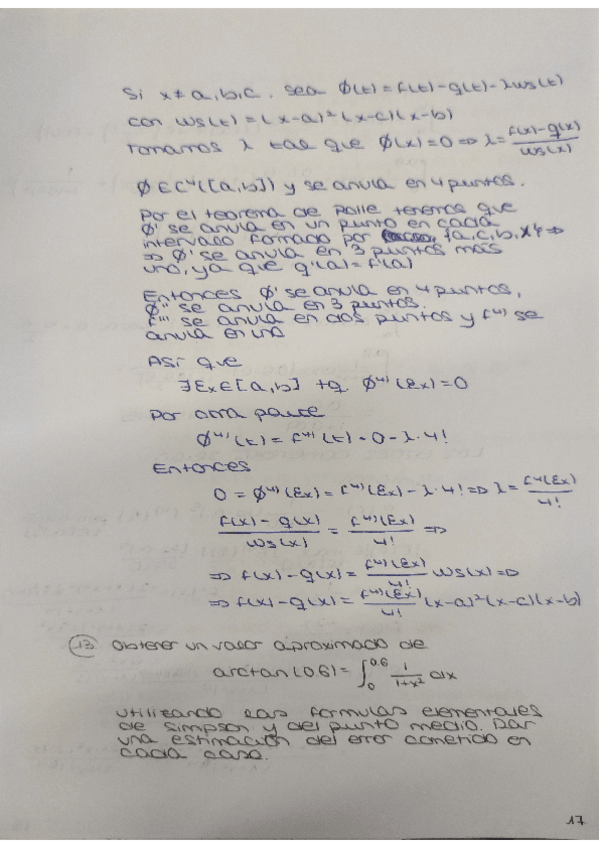 Si x ≠ a, b, c. sea ϕ(t) = f(t) - g(t) - λ ws(t)
con ws(t) = (x-a)²(x-c)(x-b)
Tomamos λ tal que ϕ(x) = 0 ⇒ λ = f(x)-g(x) / ws(x)
ϕ ∈ C⁴([a,b]) y se anula en 4 puntos.
Por el teorema de Rolle tenemos que
ϕ' se anula en un punto en cada
intervalo formado por {a, c, b, x} ⇒
⇒ ϕ' se anula en 3 puntos más
uno, ya que g'(a) = f'(a)
Entonces ϕ' se anula en 4 puntos,
ϕ'' se anula en 3 puntos.
f''' se anula en dos puntos y f⁴⁾ se
anula en uno
Así que
∃ Ɛx ∈ [a,b] tq ϕ⁴⁾(Ɛx) = 0
Por otra parte
ϕ⁴⁾(t) = f⁴⁾(t) - 0 - λ·4!
Entonces
0 = ϕ⁴⁾(Ɛx) = f⁴⁾(Ɛx) - λ·4! ⇒ λ = f⁴(Ɛx) / 4!
f(x) - g(x) / ws(x) = f⁴⁾(Ɛx) / 4! ⇒
⇒ f(x) - g(x) = f⁴⁾(Ɛx) / 4! ws(x) ⇒
⇒ f(x) - g(x) = f⁴⁾(Ɛx) / 4! (x-a)²(x-c)(x-b)
13 Obtener un valor aproximado de
arctan(0,6) = ∫₀^0.6 1 / 1+x² dx
utilizando las formulas elementales
de Simpson y del punto medio. Dar
una estimación del error cometido en
cada caso.
17